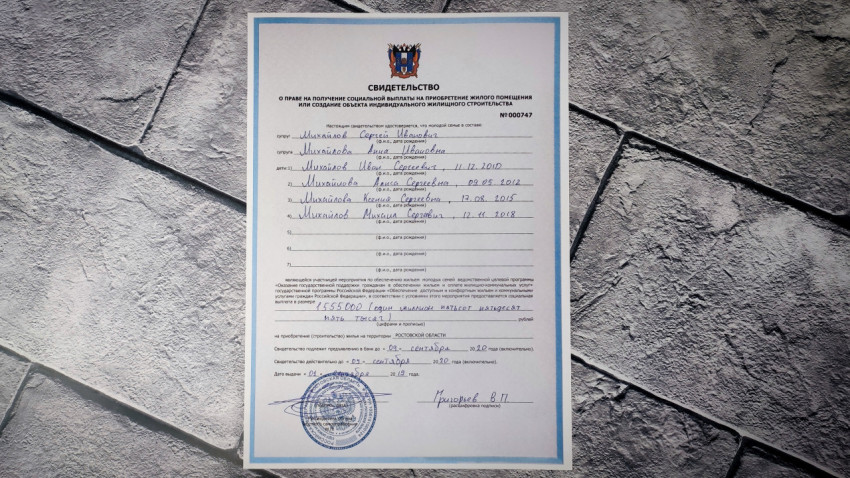 СВИДЕТЕЛЬСТВО
О ПРАВЕ НА ПОЛУЧЕНИЕ СОЦИАЛЬНОЙ ВЫПЛАТЫ НА ПРИОБРЕТЕНИЕ ЖИЛОГО ПОМЕЩЕНИЯ
ИЛИ СОЗДАНИЕ ОБЪЕКТА ИНДИВИДУАЛЬНОГО ЖИЛИЩНОГО СТРОИТЕЛЬСТВА
№ 000747
Настоящим свидетельством удостоверяется, что молодой семье в составе:
супруг Михайлов Сергей Иванович
(ф.и.о., дата рождения)
супруга Михайлова Анна Ивановна
(ф.и.о., дата рождения)
дети:1) Михайлов Иван Сергеевич, 11.12.2010
(ф.и.о., дата рождения)
2) Михайлова Алиса Сергеевна, 09.05.2012
(ф.и.о., дата рождения)
3) Михайлова Ксения Сергеевна, 17.08.2015
(ф.и.о., дата рождения)
4) Михайлов Михаил Сергеевич, 12.11.2018
(ф.и.о., дата рождения)
5)
(ф.и.о., дата рождения)
6)
(ф.и.о., дата рождения)
7)
(ф.и.о., дата рождения)
являющейся участницей мероприятия по обеспечению жильем молодых семей ведомственной целевой программы
«Оказание государственной поддержки гражданам в обеспечении жильем и оплате жилищно-коммунальных услуг»
государственной программы Российской Федерации «Обеспечение доступным и комфортным жильем и коммунальными
услугами граждан Российской Федерации», в соответствии с условиями этого мероприятия предоставляется социальная
выплата в размере
1555000 (один миллион пятьсот пятьдесят
пять тысяч) рублей
(цифрами и прописью)
на приобретение (строительство) жилья на территории РОСТОВСКОЙ ОБЛАСТИ
Свидетельство подлежит предъявлению в банк до « 09 » сентября 2020 года (включительно).
Свидетельство действительно до « 09 » сентября 2020 года (включительно).
Дата выдачи « 09 » 2019 года.
Григорьев В.П.
(расшифровка подписи)